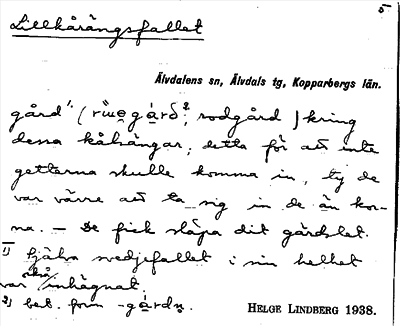 Lillkårängsfallet
5
Älvdalens sn, Älvdals tg, Kopparbergs län.
gård 1) ( rodgård ) kring
dessa kålsängar, detta för att inte
getterna skulle komma in, ty de
var värre att ta sig in de än kor-
na. – De fick släpa dit gärdslet.
1) Själva svedjefallet i sin helhet
var också inhägnat.
2) best. form -gárdn̥.
HELGE LINDBERG 1938.